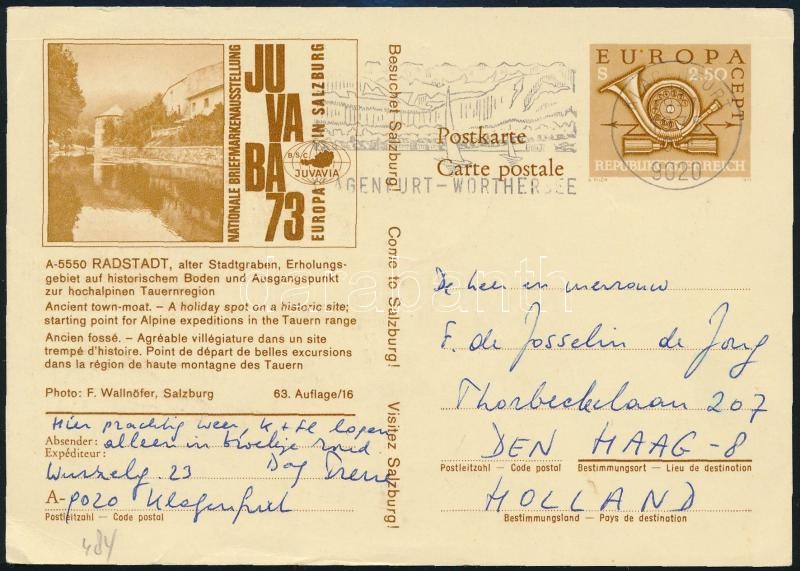 NATIONALE BRIEFMARKENAUSSTELLUNG
JU
VA
BA
73
EUROPA IN SALZBURG
B.S.C.
JUVAVIA
A-5550 RADSTADT, alter Stadtgraben, Erholungs-
gebiet auf historischem Boden und Ausgangspunkt
zur hochalpinen Tauernregion
Ancient town-moat. – A holiday spot on a historic site;
starting point for Alpine expeditions in the Tauern range
Ancien fossé. – Agréable villégiature dans un site
trempé d'histoire. Point de départ de belles excursions
dans la région de haute montagne des Tauern
Photo: F. Wallnöfer, Salzburg 63. Auflage/16
Hier prachtig weer, K + He lopen
Absender: alleen in broekje rond.
Expéditeur: Dag
23
A-9020 Klagenfurt
Postleitzahl – Code postal
484
Besuchet Salzburg! Come to Salzburg! Visitez Salzburg!
EUROPA
CEPT
S 2.50
REPUBLIK ÖSTERREICH
9020
Postkarte
Carte postale
AGENFURT-WÖRTHERSEE
De heer en mevrouw
F. de Josselin de Jong
Thorbeckelaan 207
DEN HAAG-8
Postleitzahl – Code postal Bestimmungsort – Lieu de destination
HOLLAND
Bestimmungsland – Pays de destination
darabanth